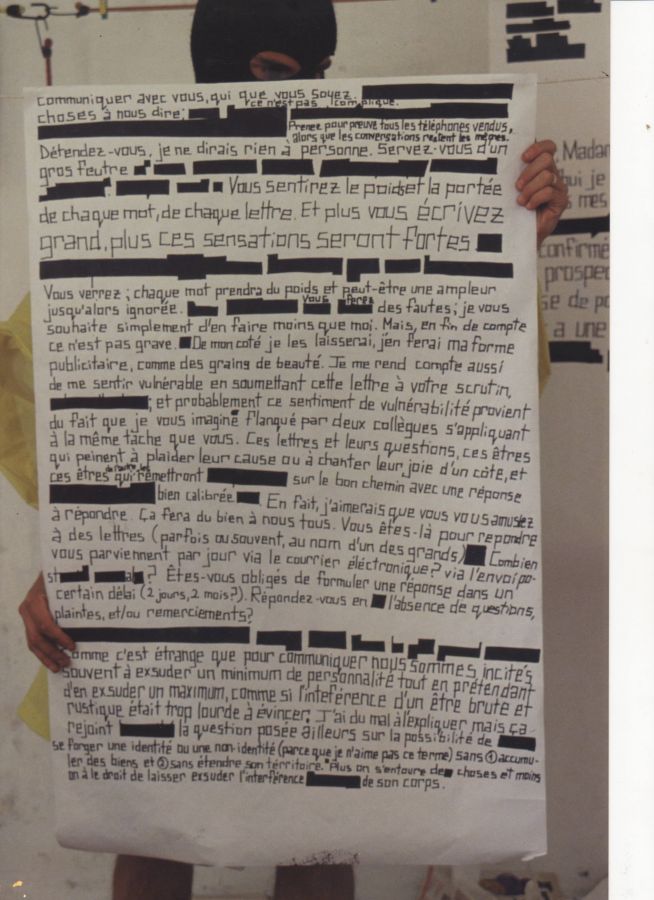 communiquer avec vous, qui que vous soyez.
ce n'est pas compliqué.
choses à nous dire;
Prenez pour preuve tous les téléphones vendus,
alors que les conversations restent les mêmes.
Détendez-vous, je ne dirais rien à personne. Servez-vous d'un
gros feutre
Vous sentirez le poids et la portée
de chaque mot, de chaque lettre. Et plus vous écrivez
grand, plus ces sensations seront fortes
Vous verrez; chaque mot prendra du poids et peut-être une ampleur
jusqu'alors ignorée. Vous ferez des fautes; je vous
souhaite simplement d'en faire moins que moi. Mais, en fin de compte
ce n'est pas grave. De mon coté je les laisserai, j'en ferai ma forme
publicitaire, comme des grains de beauté. Je me rend compte aussi
de me sentir vulnérable en soumettant cette lettre à votre scrutin,
; et probablement ce sentiment de vulnérabilité provient
du fait que je vous imagine flanqué par deux collègues s'appliquant
à la même tâche que vous. Ces lettres et leurs questions, ces êtres
qui peinent à plaider leur cause ou à chanter leur joie d'un côte, et
ces êtres qui remettront sur le bon chemin avec une réponse
bien calibrée. En fait, j'aimerais que vous vous amusiez
à répondre. Ça fera du bien à nous tous. Vous êtes-là pour repondre
à des lettres (parfois ou souvent, au nom d'un des grands) Combien
vous parviennent par jour via le courrier éléctronique? via l'envoi po-
st al ? Êtes-vous obligés de formuler une réponse dans un
certain délai (2 jours, 2 mois?). Répondez-vous en l'absence de questions,
plaintes, et/ou remerciements?
Comme c'est étrange que pour communiquer nous sommes incités
souvent à exsuder un minimum de personnalité tout en prétendant
d'en exsuder un maximum, comme si l'inteférence d'un être brute et
rustique était trop lourde à évincer. J'ai du mal à l'expliquer mais ça
rejoint la question posée ailleurs sur la possibilité de
se forger une identité ou une non-identité (parce que je n'aime pas ce terme) sans ① accumu-
ler des biens et ② sans étendre son térritoire. Plus on s'entoure de choses et moins
on a le droit de laisser exsuder l'interférence de son corps.
, Madam
hui je
s mes
confirmé
prospec
se de po
a une